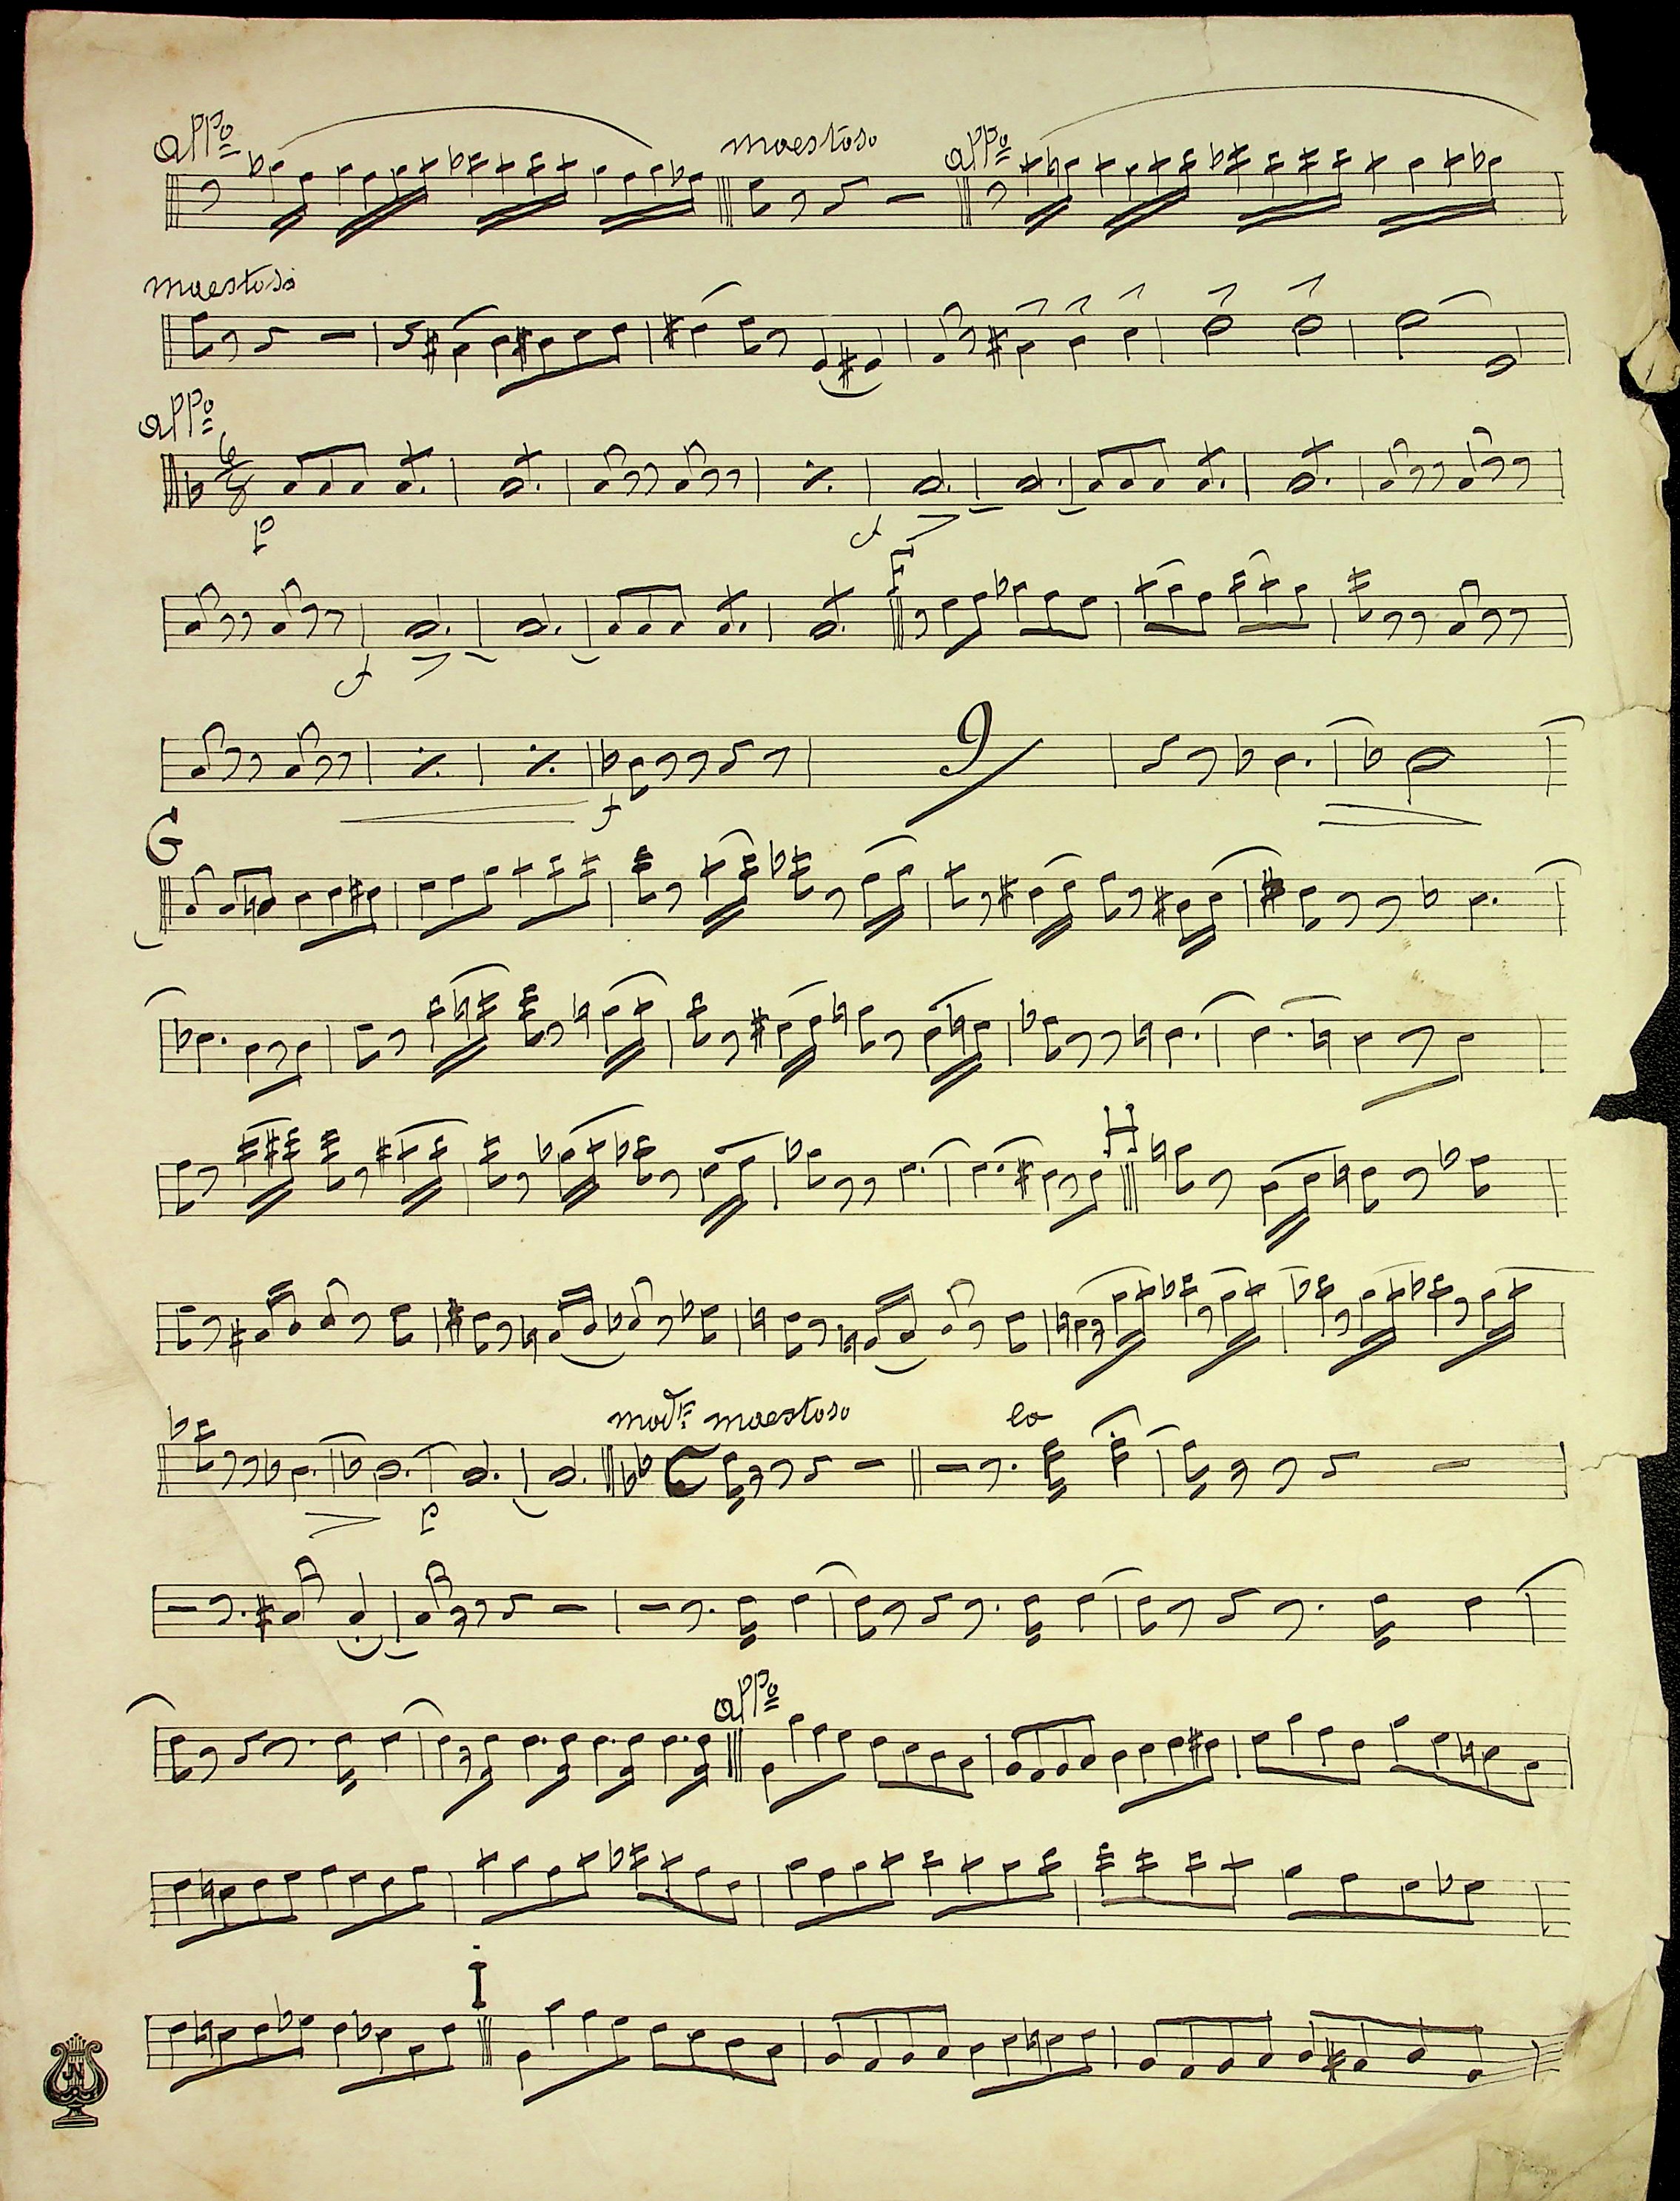 allº maestoso allº
maestoso
allº
6
8
p f
F
f
9
f
G
H
modtº maestoso lo
p
allº
I